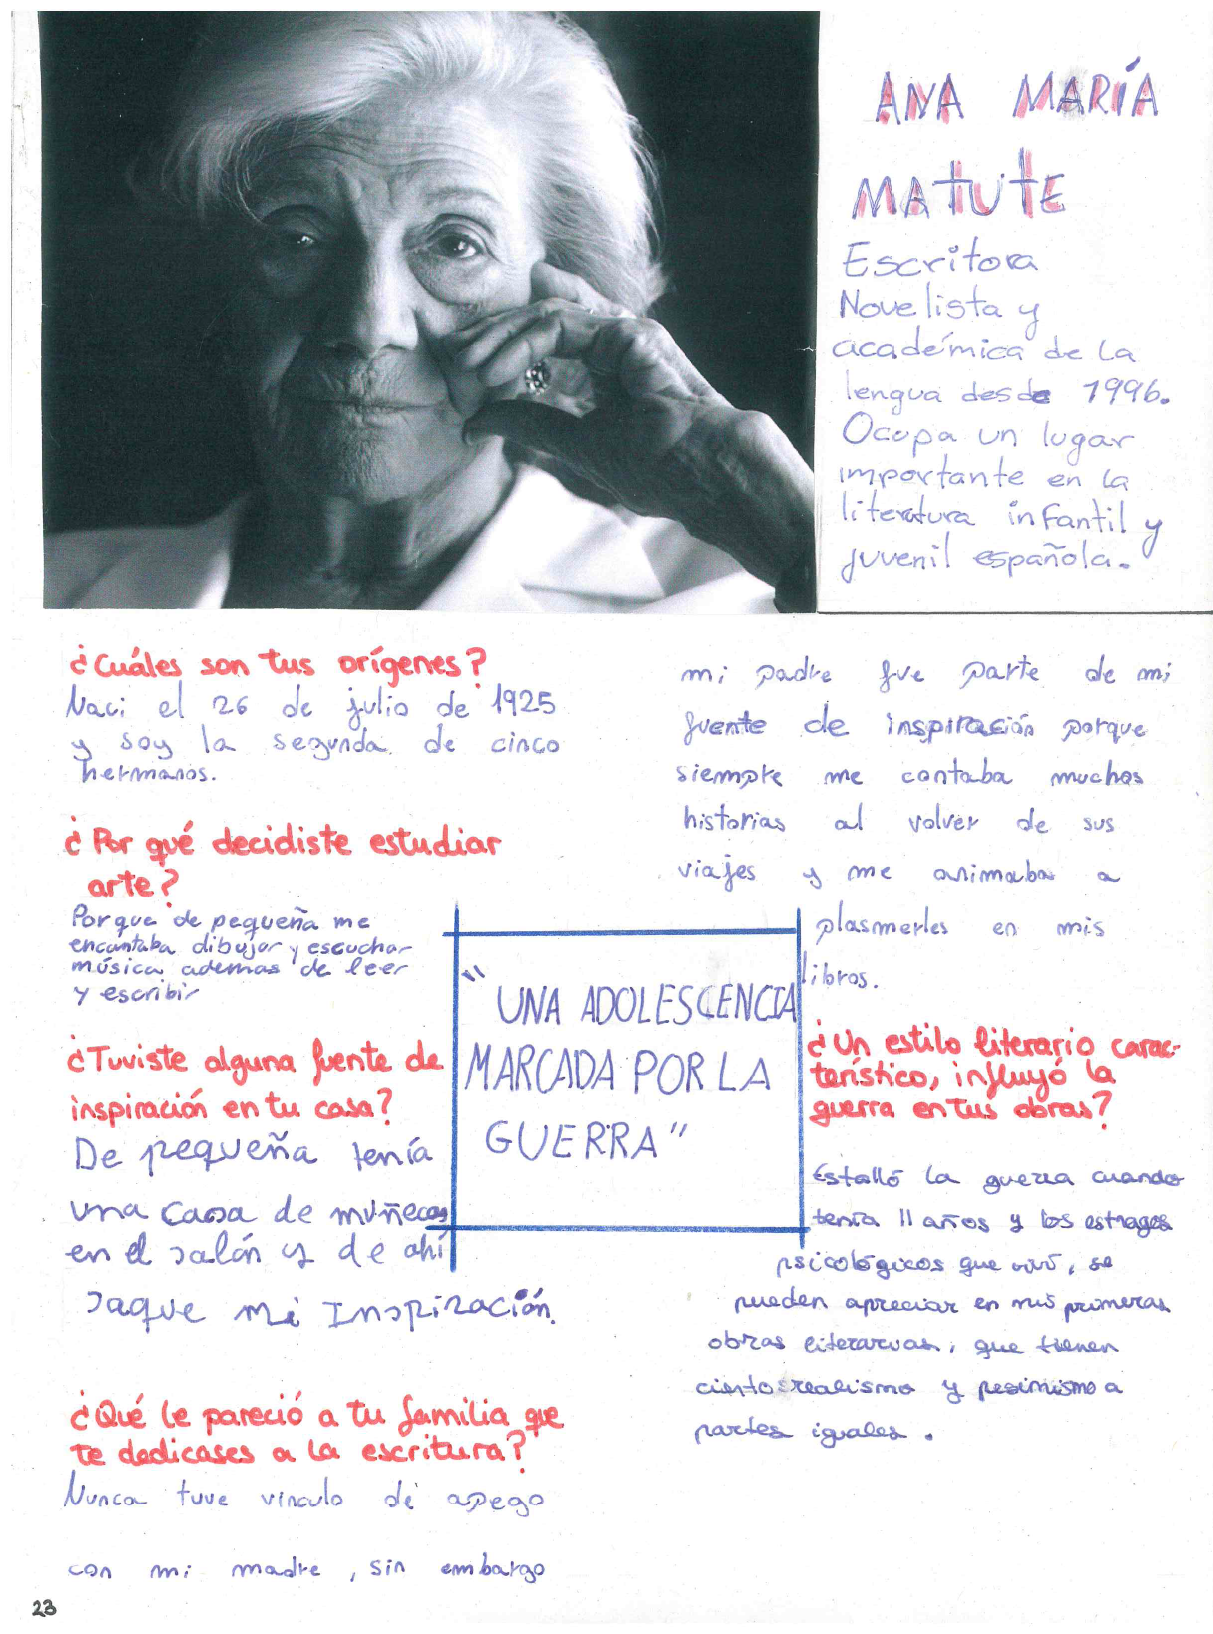 ANA MARÍA
MATUTE
Escritora
Novelista y
académica de la
lengua desde 1996.
Ocupa un lugar
importante en la
literatura infantil y
juvenil española.
¿Cuáles son tus orígenes?
Naci el 26 de julio de 1925
y soy la segunda de cinco
hermanos.
¿Por qué decidiste estudiar
arte?
Porque de pequeña me
encantaba dibujar y escuchar
música ademas de leer
y escribir
¿Tuviste alguna fuente de
inspiración en tu casa?
De pequeña tenía
una casa de muñecas
en el salón y de ahí
saque mi Inspiración.
¿Qué le pareció a tu familia que
te dedicases a la escritura?
Nunca tuve vinculo de apego
con mi madre, sin embargo
mi padre fue parte de mi
fuente de inspiración porque
siempre me contaba muchas
historias al volver de sus
viajes y me animaba a
plasmerles en mis
libros.
"UNA ADOLESCENCIA
MARCADA POR LA
GUERRA"
¿Un estilo literario carac-
terístico, influyó la
guerra en tus obras?
Estalló la guerra cuando
tenía 11 años y los estragos
psicológicos que viví, se
pueden apreciar en mis primeras
obras literarias, que tienen
cierto realismo y pesimismo a
partes iguales.
23